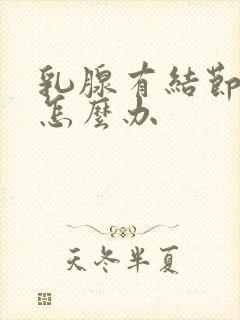 乳腺有結節
怎麼办
天冬半夏